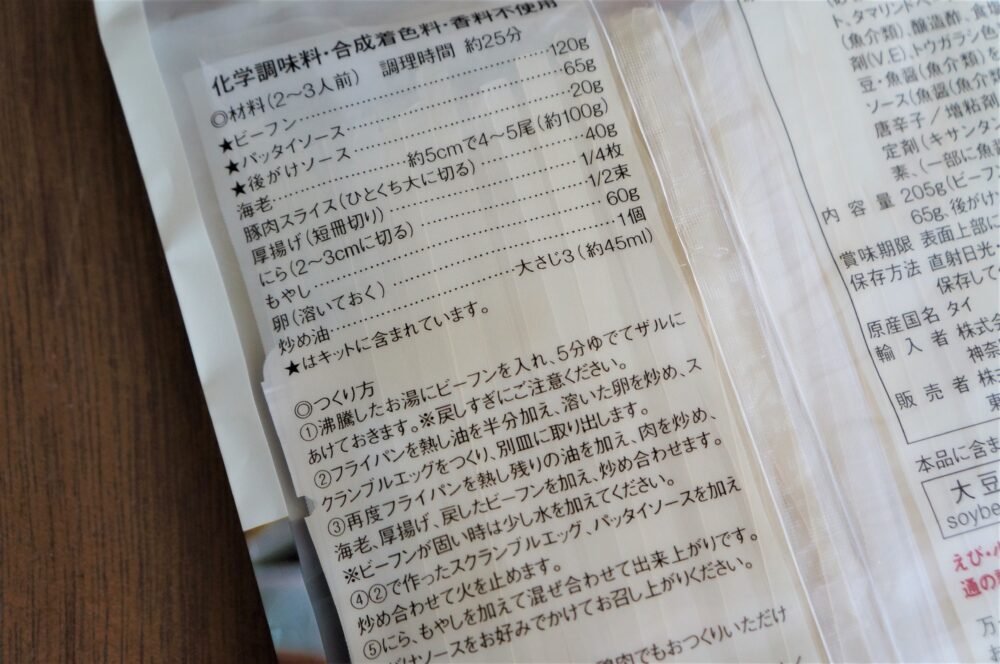 化学調味料・合成着色料・香料不使用
◎材料(2～3人前) 調理時間 約25分
★ビーフン…………120g
★パッタイソース…………65g
★後がけソース…………20g
海老…………約5cmで4～5尾(約100g)
豚肉スライス(ひとくち大に切る)…………40g
厚揚げ(短冊切り)…………1/4枚
にら(2～3cmに切る)…………1/2束
もやし…………60g
卵(溶いておく)…………1個
炒め油…………大さじ3(約45ml)
★はキットに含まれています。
◎つくり方
①沸騰したお湯にビーフンを入れ、5分ゆでてザルに
あけておきます。※戻しすぎにご注意ください。
②フライパンを熱し油を半分加え、溶いた卵を炒め、ス
クランブルエッグをつくり、別皿に取り出します。
③再度フライパンを熱し残りの油を加え、肉を炒め、
海老、厚揚げ、戻したビーフンを加え、炒め合わせます。
※ビーフンが固い時は少し水を加えてください。
④②で作ったスクランブルエッグ、パッタイソースを加え
炒め合わせて火を止めます。
⑤にら、もやしを加えて混ぜ合わせて出来上がりです。
がけソースをお好みでかけてお召し上がりください。
鶏肉でもおつくりいただけ
ト、タマリンドペ
(魚介類)、醸造酢、食塩
剤(V.E)、トウガラシ色
豆・魚醤(魚介類)を
ソース(魚醤(魚介類)
唐辛子/増粘剤
定剤(キサンタン
素、(一部に魚醤
内容量 205g(ビーフン
65g、後がけ
賞味期限 表面上部に
保存方法 直射日光
保存して
原産国名 タイ
輸入者 株式会
神奈
販売者 株式
東
本品に含ま
大豆
soybe
えび・
通の
万
お